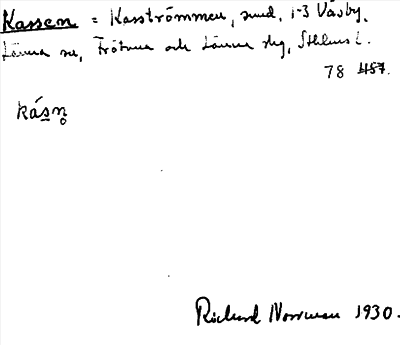 Kassen = Kasströmmen, sund, 1-3 Väsby,
Länna sn, Frötuna och Länna skg, Sthlms l.
78 457.
kásn̥
Richard Norrman 1930.